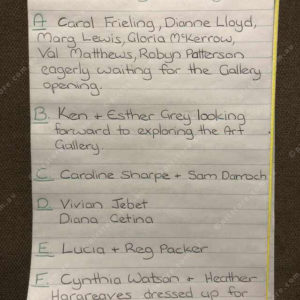 A. Carol Frieling, Dianne Lloyd,
Marg Lewis, Gloria McKerrow,
Val Matthews, Robyn Patterson
eagerly waiting for the Gallery
opening.
B. Ken + Esther Grey looking
forward to exploring the Art
Gallery.
C. Caroline Sharpe + Sam Darroch
D. Vivian Jebet
Diana Cetina
E. Lucia + Reg Packer
F. Cynthia Watson + Heather
Hargreaves dressed up for